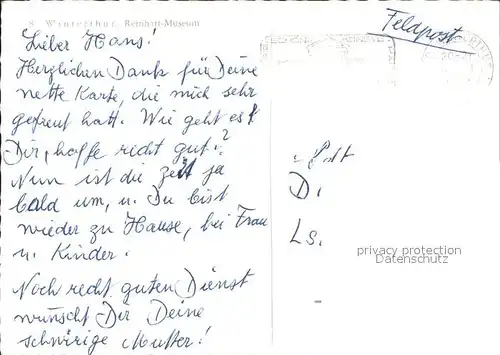 8 Winterthur. Reinhart-Museum
Feldpost
Lieber Hans!
Herzlichen Dank für Deine
nette Karte, die mich sehr
gefreut hatt. Wie geht es
Dir, hoffe recht gut?
Nun ist die Zeit ja
bald um, u. Du bist
wieder zu Hause, bei Frau
u. Kinder.
Noch recht guten Dienst
wünscht Dir Deine
schwirige Mutter!
D.
Ls.
privacy protection
Datenschutz